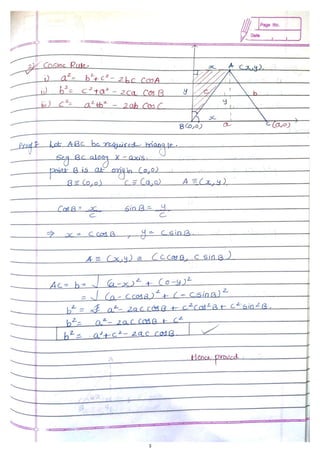 Page No.
Date
3) Cosine Rule-
i) a² = b² + c² - 2bc CosA
ii) b² = c² + a² - 2ca Cos B
iii) c² = a² + b² - 2ab Cos C
x A (x,y)
y c y b
x
B(0,0) a C(a,0)
Proof: Let ABC be required triangle.
Seg BC along x-axis.
point B is at origin (0,0)
B ≡ (0,0) C ≡ (a,0) A ≡ (x,y)
CosB = x/c sinB = y/c
⇒ x = c cosB , y = c sinB.
A ≡ (x,y) ≡ (c cosB, c sinB)
AC = b = √(a-x)² + (0-y)²
= √(a - c cosB)² + (- c sinB)²
b² = a² - 2ac cosB + c² cos²B + c² sin²B.
b² = a² - 2ac cosB + c²
b² = a² + c² - 2ac cosB.
Hence proved.